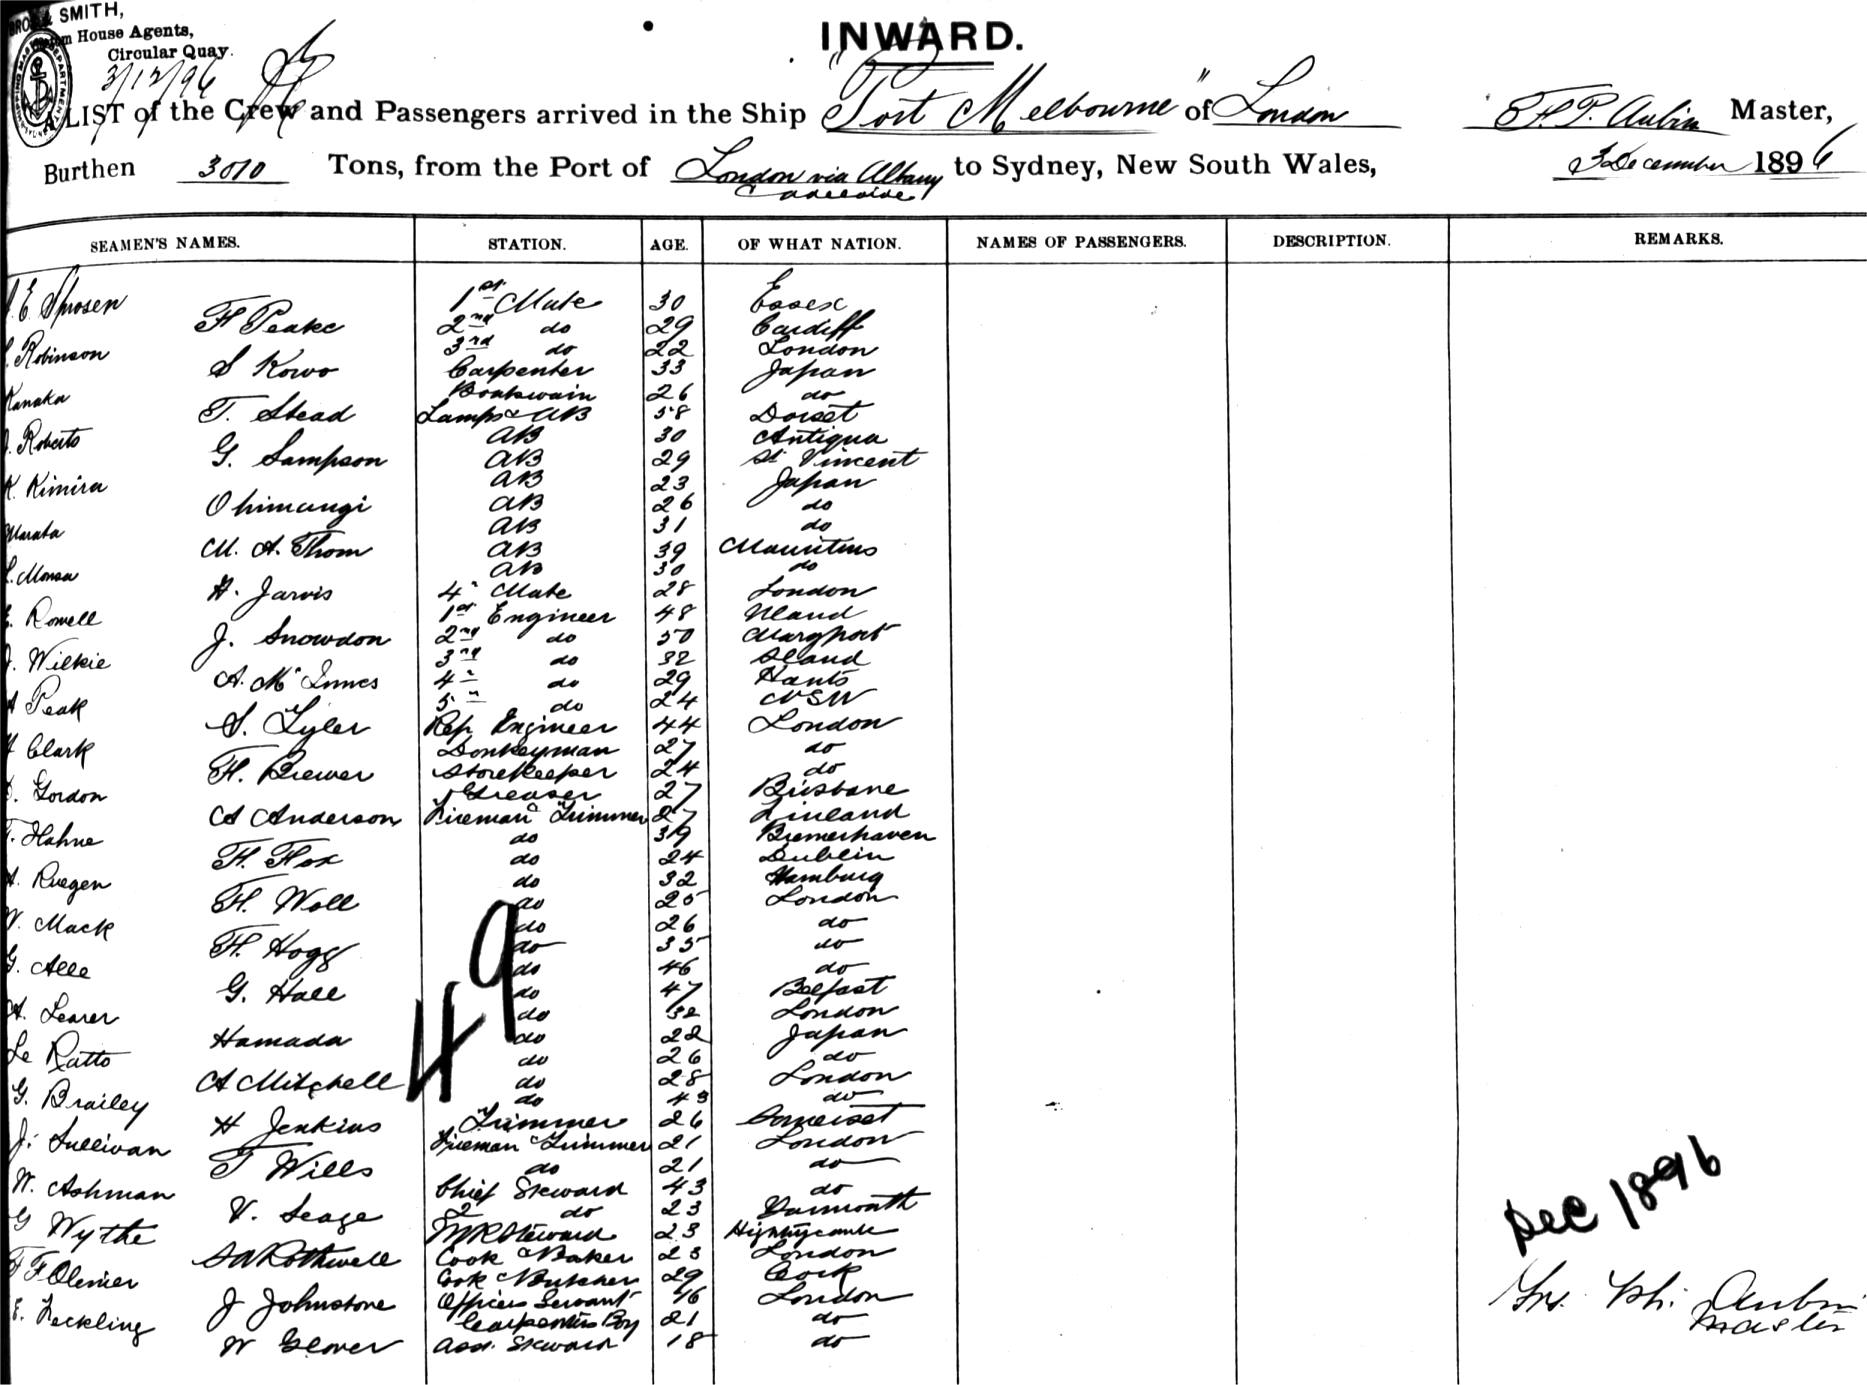 BROS & SMITH,
Custom House Agents,
Circular Quay.
3/12/96
INWARD.
A LIST of the Crew and Passengers arrived in the Ship "Port Melbourne" of London Aubin Master,
Burthen 3010 Tons, from the Port of London via Albany Adelaide to Sydney, New South Wales, 3 December 1896
SEAMEN'S NAMES. STATION. AGE. OF WHAT NATION. NAMES OF PASSENGERS. DESCRIPTION. REMARKS.
E. Sprosen 1st Mate 30 Essex
F Peake 2nd do 29 Cardiff
Robinson 3rd do 22 London
S Kowo Carpenter 33 Japan
Kanaka Boatswain 26 do
T. Stead Lamps & AB 58 Dorset
J. Roberts AB 30 Antigua
G. Sampson AB 29 St Vincent
K. Kimira AB 23 Japan
Ohimangi AB 26 do
Marata AB 31 do
M. A. Thom AB 39 Mauritius
AB 30 do
H. Jarvis 4" Mate 28 London
E. Rowell 1st Engineer 48 Sland
J. Snowdon 2nd do 50 Maryport
J. Wilkie 3rd do 32 Sland
A. McInnes 4" do 29 Hants
Peak 5" do 24 NSW
S. Tyler Rep Engineer 44 London
Clark Donkeyman 27 do
F. Brewer Storekeeper 24 do
Gordon Greaser 27 Brisbane
A Anderson Fireman & Trimmer 27 Finland
Hahne do 39 Bremerhaven
F. Fox do 24 Dublin
Ruegen do 32 Hamburg
F. Woll do 25 London
W. Mack do 26 do
F. Hogg do 35 do
G. Alle do 46 do
G. Hall do 47 Belfast
A. Learer do 32 London
Hamada do 22 Japan
Le Ratto do 26 do
A Mitchell do 28 London
G. Brailey do 43 do
H Jenkins Trimmer 26 Somerset
J. Sullivan Fireman & Trimmer 21 London
T Wills do 21 do
W. Ashman Chief Steward 43 do
V. Seage 2 do 23 Yarmouth
G Wythe MR Steward 23 Highwycombe
Rothwell Cook & Baker 23 London
F Olenier Cook & Butcher 29 Cork
J Johnstone Officers Servant 16 London
E. Keckling Carpenters Boy 21 do
W Glover Asst. Steward 18 do
49
Dec 1896
Aubin
Master